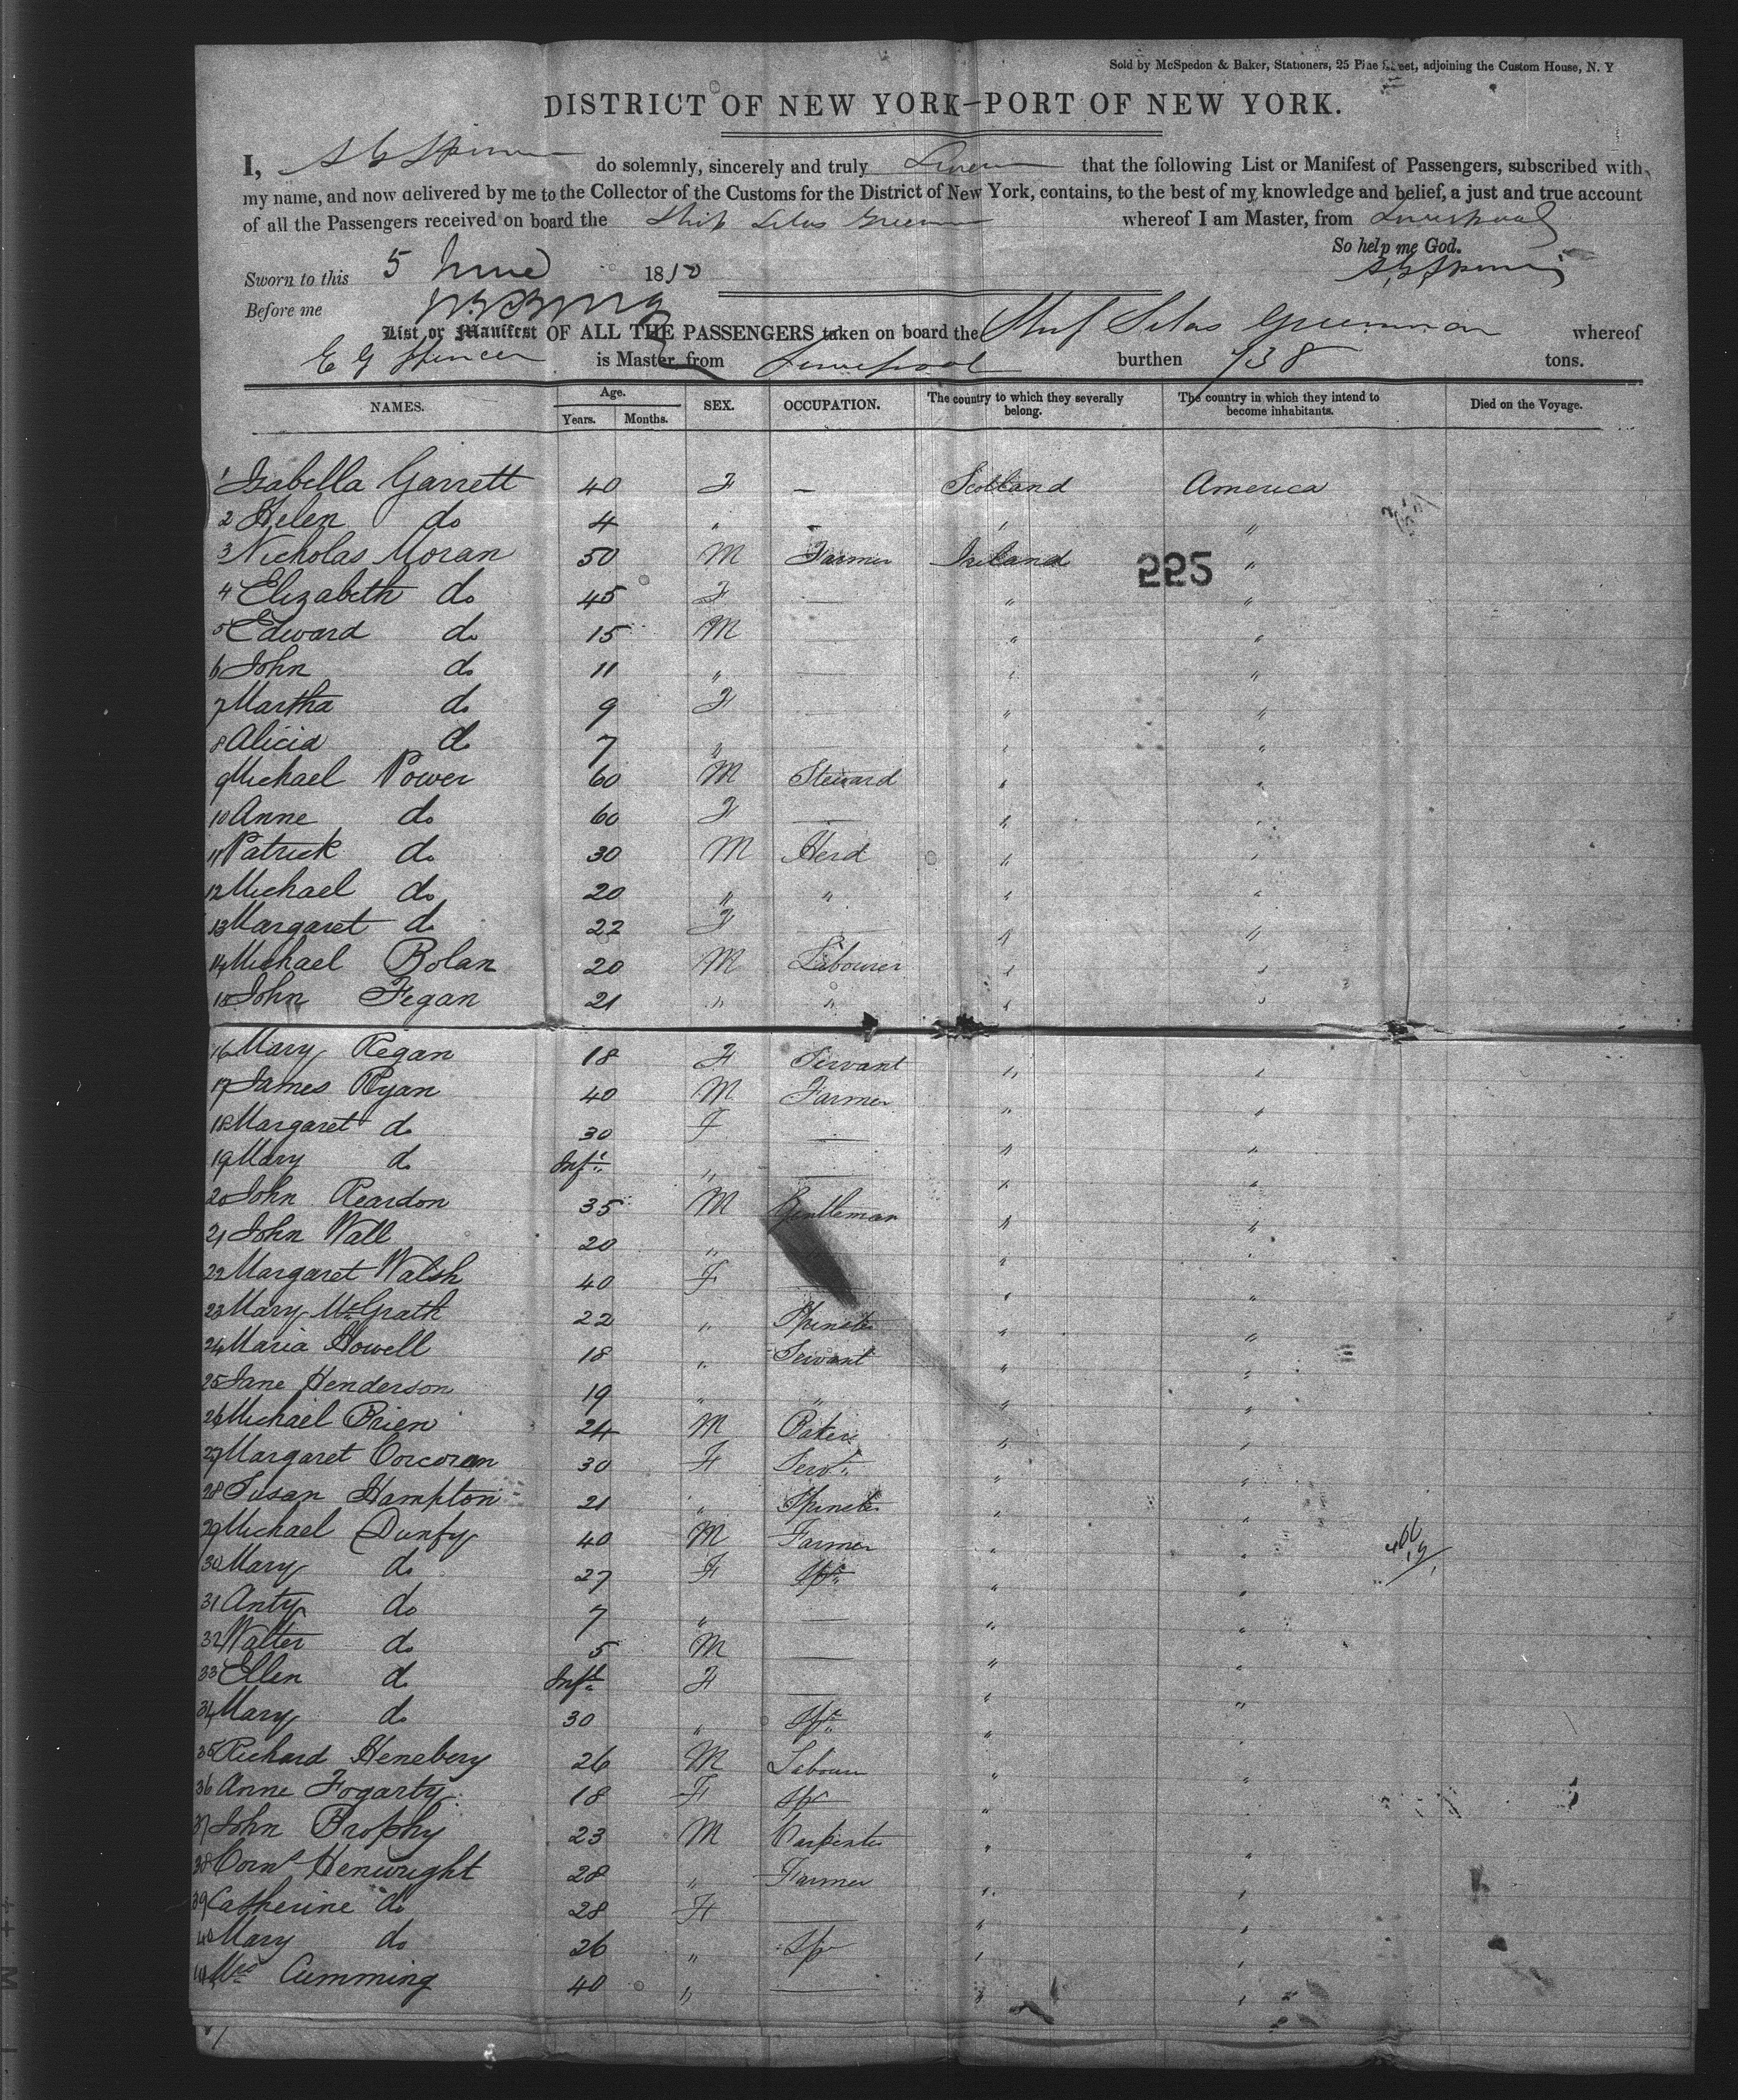 Sold by McSpedon & Baker, Stationers, 25 Pine Street, adjoining the Custom House, N. Y
DISTRICT OF NEW YORK–PORT OF NEW YORK.
I, do solemnly, sincerely and truly Swear that the following List or Manifest of Passengers, subscribed with
my name, and now delivered by me to the Collector of the Customs for the District of New York, contains, to the best of my knowledge and belief, a just and true account
of all the Passengers received on board the Ship Silas Greenman whereof I am Master, from Liverpool
So help me God.
Sworn to this 5 June 1850
Before me
List or Manifest OF ALL THE PASSENGERS taken on board the Ship Silas Greenman whereof
E G Spencer is Master, from Liverpool burthen 738 tons.
NAMES. Age. Years. Months. SEX. OCCUPATION. The country to which they severally belong. The country in which they intend to become inhabitants. Died on the Voyage.
1 Isabella Garrett 40 F — Scotland America
2 Helen do 4 " - " "
3 Nicholas Moran 50 M Farmer Ireland "
225
4 Elizabeth do 45 F — " "
5 Edward do 15 M — " "
6 John do 11 " — " "
7 Martha do 9 F — " "
8 Alicia do 7 " — " "
9 Michael Power 60 M Steward " "
10 Anne do 60 F — " "
11 Patrick do 30 M Herd " "
12 Michael do 20 " " " "
13 Margaret do 22 F — " "
14 Michael Bolan 20 M Labourer " "
15 John Fegan 21 " " " "
16 Mary Regan 18 F Servant " "
17 James Ryan 40 M Farmer " "
18 Margaret do 30 F — " "
19 Mary do Inft " — " "
20 John Reardon 35 M Gentleman " "
21 John Wall 20 " " "
22 Margaret Walsh 40 F — " "
23 Mary McGrath 22 " Spinster " "
24 Maria Howell 18 " Servant " "
25 Jane Henderson 19 " " " "
26 Michael Brien 24 M Baker " "
27 Margaret Corcoran 30 F Servt " "
28 Susan Hampton 21 " Spinster " "
29 Michael Dunfy 40 M Farmer " "
30 Mary do 27 F Spr " "
31 Anty do 7 " — " "
32 Walter do 5 M — " "
33 Ellen do Inft F — " "
34 Mary do 30 " Spr " "
35 Richard Henebery 26 M Labourer " "
36 Anne Fogarty 18 F Spr " "
37 John Brophy 23 M Carpenter " "
38 Corns Henwright 28 " Farmer " "
39 Catherine do 28 F — " "
40 Mary do 26 " Sp " "
41 Mrs Cumming 40 " — " "